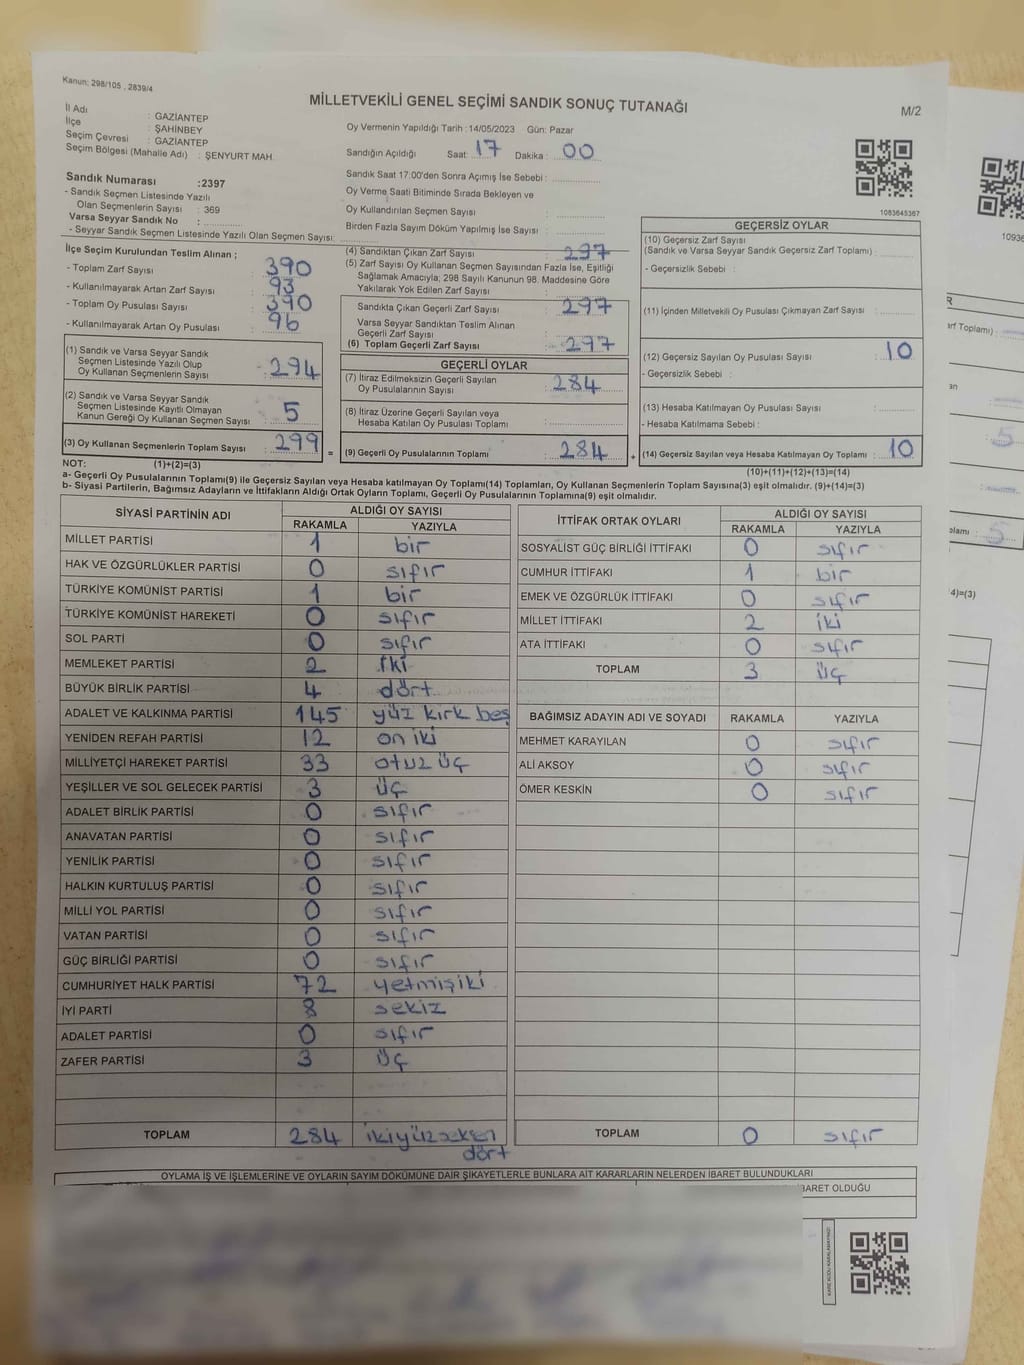 Kanun: 298/105 , 2839/4
MİLLETVEKİLİ GENEL SEÇİMİ SANDIK SONUÇ TUTANAĞI
M/2
İl Adı : GAZİANTEP
İlçe : ŞAHİNBEY
Seçim Çevresi : GAZİANTEP
Seçim Bölgesi (Mahalle Adı) : ŞENYURT MAH.
Oy Vermenin Yapıldığı Tarih : 14/05/2023 Gün: Pazar
Sandığın Açıldığı Saat: 17 Dakika : 00
Sandık Saat 17:00'den Sonra Açımış İse Sebebi :
Oy Verme Saati Bitiminde Sırada Bekleyen ve
Oy Kullandırılan Seçmen Sayısı :
Birden Fazla Sayım Döküm Yapılmış İse Sayısı :
1083645367
Sandık Numarası :2397
- Sandık Seçmen Listesinde Yazılı
Olan Seçmenlerin Sayısı : 369
Varsa Seyyar Sandık No :
- Seyyar Sandık Seçmen Listesinde Yazılı Olan Seçmen Sayısı:
İlçe Seçim Kurulundan Teslim Alınan ;
- Toplam Zarf Sayısı : 390
- Kullanılmayarak Artan Zarf Sayısı : 93
- Toplam Oy Pusulası Sayısı : 390
- Kullanılmayarak Artan Oy Pusulası : 96
(1) Sandık ve Varsa Seyyar Sandık
Seçmen Listesinde Yazılı Olup
Oy Kullanan Seçmenlerin Sayısı : 294
(2) Sandık ve Varsa Seyyar Sandık
Seçmen Listesinde Kayıtlı Olmayan
Kanun Gereği Oy Kullanan Seçmen Sayısı : 5
(3) Oy Kullanan Seçmenlerin Toplam Sayısı : 299
(4) Sandıktan Çıkan Zarf Sayısı : 297
(5) Zarf Sayısı Oy Kullanan Seçmen Sayısından Fazla İse, Eşitliği
Sağlamak Amacıyla; 298 Sayılı Kanunun 98. Maddesine Göre
Yakılarak Yok Edilen Zarf Sayısı :
Sandıkta Çıkan Geçerli Zarf Sayısı : 297
Varsa Seyyar Sandıktan Teslim Alınan
Geçerli Zarf Sayısı :
(6) Toplam Geçerli Zarf Sayısı : 297
GEÇERLİ OYLAR
(7) İtiraz Edilmeksizin Geçerli Sayılan
Oy Pusulalarının Sayısı : 284
(8) İtiraz Üzerine Geçerli Sayılan veya
Hesaba Katılan Oy Pusulası Toplamı :
= (9) Geçerli Oy Pusulalarının Toplamı : 284
GEÇERSİZ OYLAR
(10) Geçersiz Zarf Sayısı
(Sandık ve Varsa Seyyar Sandık Geçersiz Zarf Toplamı) :
- Geçersizlik Sebebi :
(11) İçinden Milletvekili Oy Pusulası Çıkmayan Zarf Sayısı :
(12) Geçersiz Sayılan Oy Pusulası Sayısı : 10
- Geçersizlik Sebebi :
(13) Hesaba Katılmayan Oy Pusulası Sayısı :
- Hesaba Katılmama Sebebi :
+ (14) Geçersiz Sayılan veya Hesaba Katılmayan Oy Toplamı : 10
NOT: (1)+(2)=(3)
(10)+(11)+(12)+(13)=(14)
a- Geçerli Oy Pusulalarının Toplamı(9) ile Geçersiz Sayılan veya Hesaba katılmayan Oy Toplamı(14) Toplamları, Oy Kullanan Seçmenlerin Toplam Sayısına(3) eşit olmalıdır. (9)+(14)=(3)
b- Siyasi Partilerin, Bağımsız Adayların ve İttifakların Aldığı Ortak Oyların Toplamı, Geçerli Oy Pusulalarının Toplamına(9) eşit olmalıdır.
SİYASİ PARTİNİN ADI ALDIĞI OY SAYISI
RAKAMLA YAZIYLA
MİLLET PARTİSİ 1 bir
HAK VE ÖZGÜRLÜKLER PARTİSİ 0 sıfır
TÜRKİYE KOMÜNİST PARTİSİ 1 bir
TÜRKİYE KOMÜNİST HAREKETİ 0 sıfır
SOL PARTİ 0 sıfır
MEMLEKET PARTİSİ 2 İki
BÜYÜK BİRLİK PARTİSİ 4 dört
ADALET VE KALKINMA PARTİSİ 145 yüz kırk beş
YENİDEN REFAH PARTİSİ 12 on iki
MİLLİYETÇİ HAREKET PARTİSİ 33 otuz üç
YEŞİLLER VE SOL GELECEK PARTİSİ 3 üç
ADALET BİRLİK PARTİSİ 0 sıfır
ANAVATAN PARTİSİ 0 sıfır
YENİLİK PARTİSİ 0 sıfır
HALKIN KURTULUŞ PARTİSİ 0 sıfır
MİLLİ YOL PARTİSİ 0 sıfır
VATAN PARTİSİ 0 sıfır
GÜÇ BİRLİĞİ PARTİSİ 0 sıfır
CUMHURİYET HALK PARTİSİ 72 yetmişiki
İYİ PARTİ 8 sekiz
ADALET PARTİSİ 0 sıfır
ZAFER PARTİSİ 3 üç
TOPLAM 284 ikiyüzseksen
dört
İTTİFAK ORTAK OYLARI ALDIĞI OY SAYISI
RAKAMLA YAZIYLA
SOSYALİST GÜÇ BİRLİĞİ İTTİFAKI 0 sıfır
CUMHUR İTTİFAKI 1 bir
EMEK VE ÖZGÜRLÜK İTTİFAKI 0 sıfır
MİLLET İTTİFAKI 2 iki
ATA İTTİFAKI 0 sıfır
TOPLAM 3 üç
BAĞIMSIZ ADAYIN ADI VE SOYADI RAKAMLA YAZIYLA
MEHMET KARAYILAN 0 sıfır
ALİ AKSOY 0 sıfır
ÖMER KESKİN 0 sıfır
TOPLAM 0 sıfır
OYLAMA İŞ VE İŞLEMLERİNE VE OYLARIN SAYIM DÖKÜMÜNE DAİR ŞİKAYETLERLE BUNLARA AİT KARARLARIN NELERDEN İBARET BULUNDUKLARI
BARET OLDUĞU
KARE KODU KARALAMAYINIZ!
1093
rf Toplamı) :
an
5
plamı : 5
4)=(3)